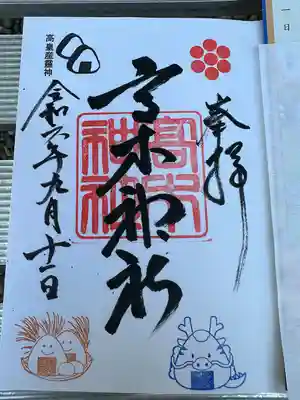 奉拝
高木神社
高木神社
令和六年九月十一日
高皇産霊神
一日